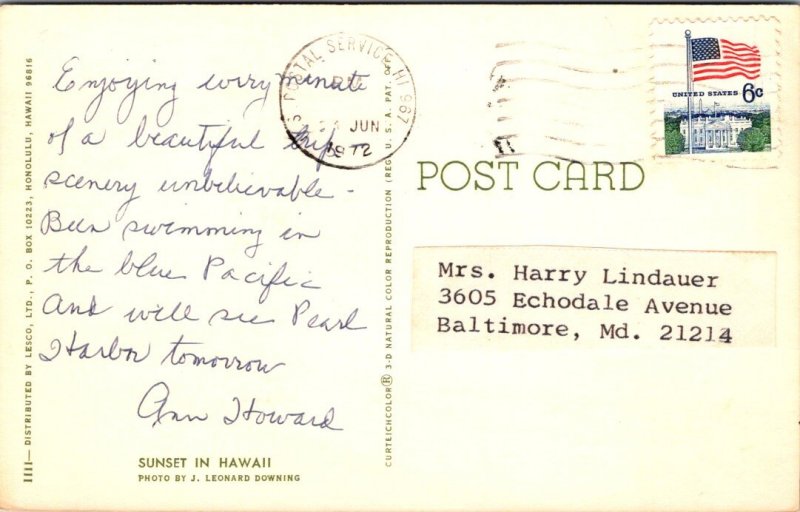 Enjoying every minute
of a beautiful trip -
scenery unbelievable -
Been swimming in
the blue Pacific
And will see Pearl
Harbor tomorrow
Ann Howard
SUNSET IN HAWAII
PHOTO BY J. LEONARD DOWNING
1111— DISTRIBUTED BY LESCO, LTD., P. O. BOX 10223, HONOLULU, HAWAII 96816
CURTEICHCOLOR® 3-D NATURAL COLOR REPRODUCTION (REG. U. S. A. PAT. OFF.)
POSTAL SERVICE HI 967
JUN
1972
UNITED STATES 6c
POST CARD
Mrs. Harry Lindauer
3605 Echodale Avenue
Baltimore, Md. 21214